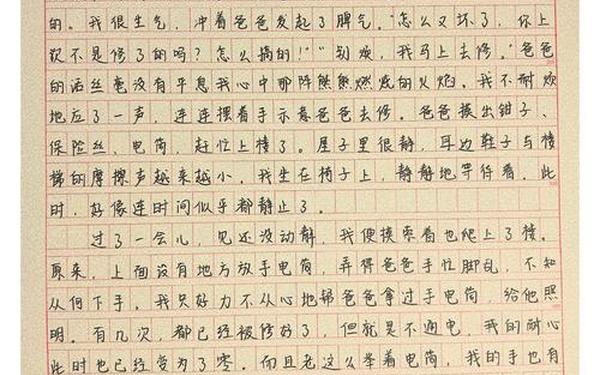 的。我很生气,冲着爸爸发起了脾气。“怎么又坏了,你上
次不是修了的吗?怎么搞的!”“别烦,我马上去修。”爸爸
的话丝毫没有平息我心中那阵熊熊燃烧的火焰。我不耐烦
地应了一声,连连摆着手示意爸爸去修。爸爸摸出钳子、
保险丝、电筒,赶忙上楼了。屋子里很静,耳边鞋子与楼
梯的摩擦声越来越小。我坐在椅子上,静静地等待着。此
时,好像连时间似乎都静止了。
过了一会儿,见还没动静,我便摸索着也爬上了楼。
原来,上面没有地方放手电筒,弄得爸爸手忙脚乱,不知
从何下手。我只好力不从心地帮爸爸拿过手电筒,给他照
明。有几次,都已经被修好了,但就是不通电。我的耐心
此时也已经变为了零。而且老这么举着电筒,我的手也有